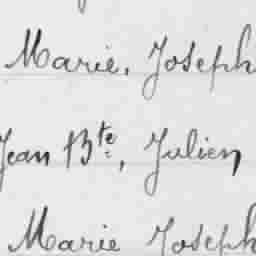 Marie, Joseph
Jean Bte, Julien
Marie Joseph